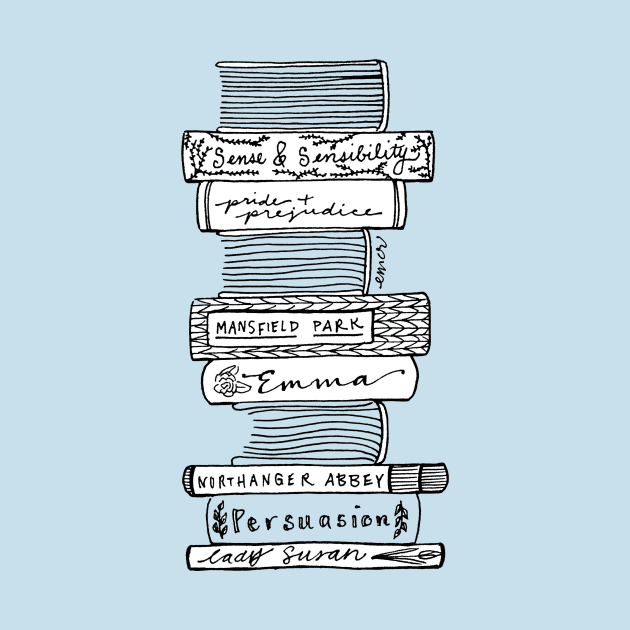 Sense & Sensibility
pride +
prejudice
emcr
MANSFIELD PARK
Emma
NORTHANGER ABBEY
Persuasion
lady Susan